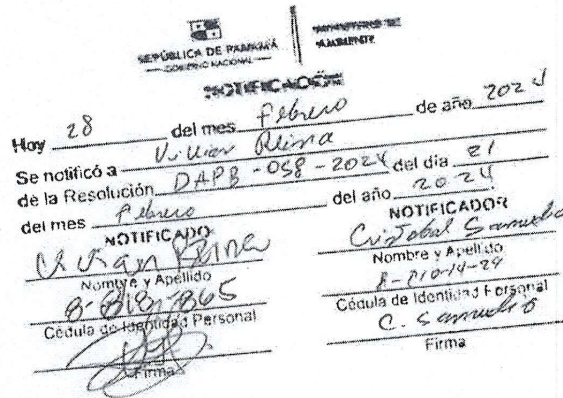 REPÚBLICA DE PANAMÁ
— GOBIERNO NACIONAL —
MINISTERIO DE
AMBIENTE
NOTIFICACIÓN
Hoy 28 del mes Febrero de año 2024
Se notificó a Vivian Reina
de la Resolución DAPB-058-2024 del día 21
del mes Febrero del año 2024
NOTIFICADO
Vivian Reina
Nombre y Apellido
8-818-765
Cédula de Identidad Personal
Firma
NOTIFICADOR
Cristobal Samudio
Nombre y Apellido
Cédula de Identidad Personal
C. Samudio
Firma